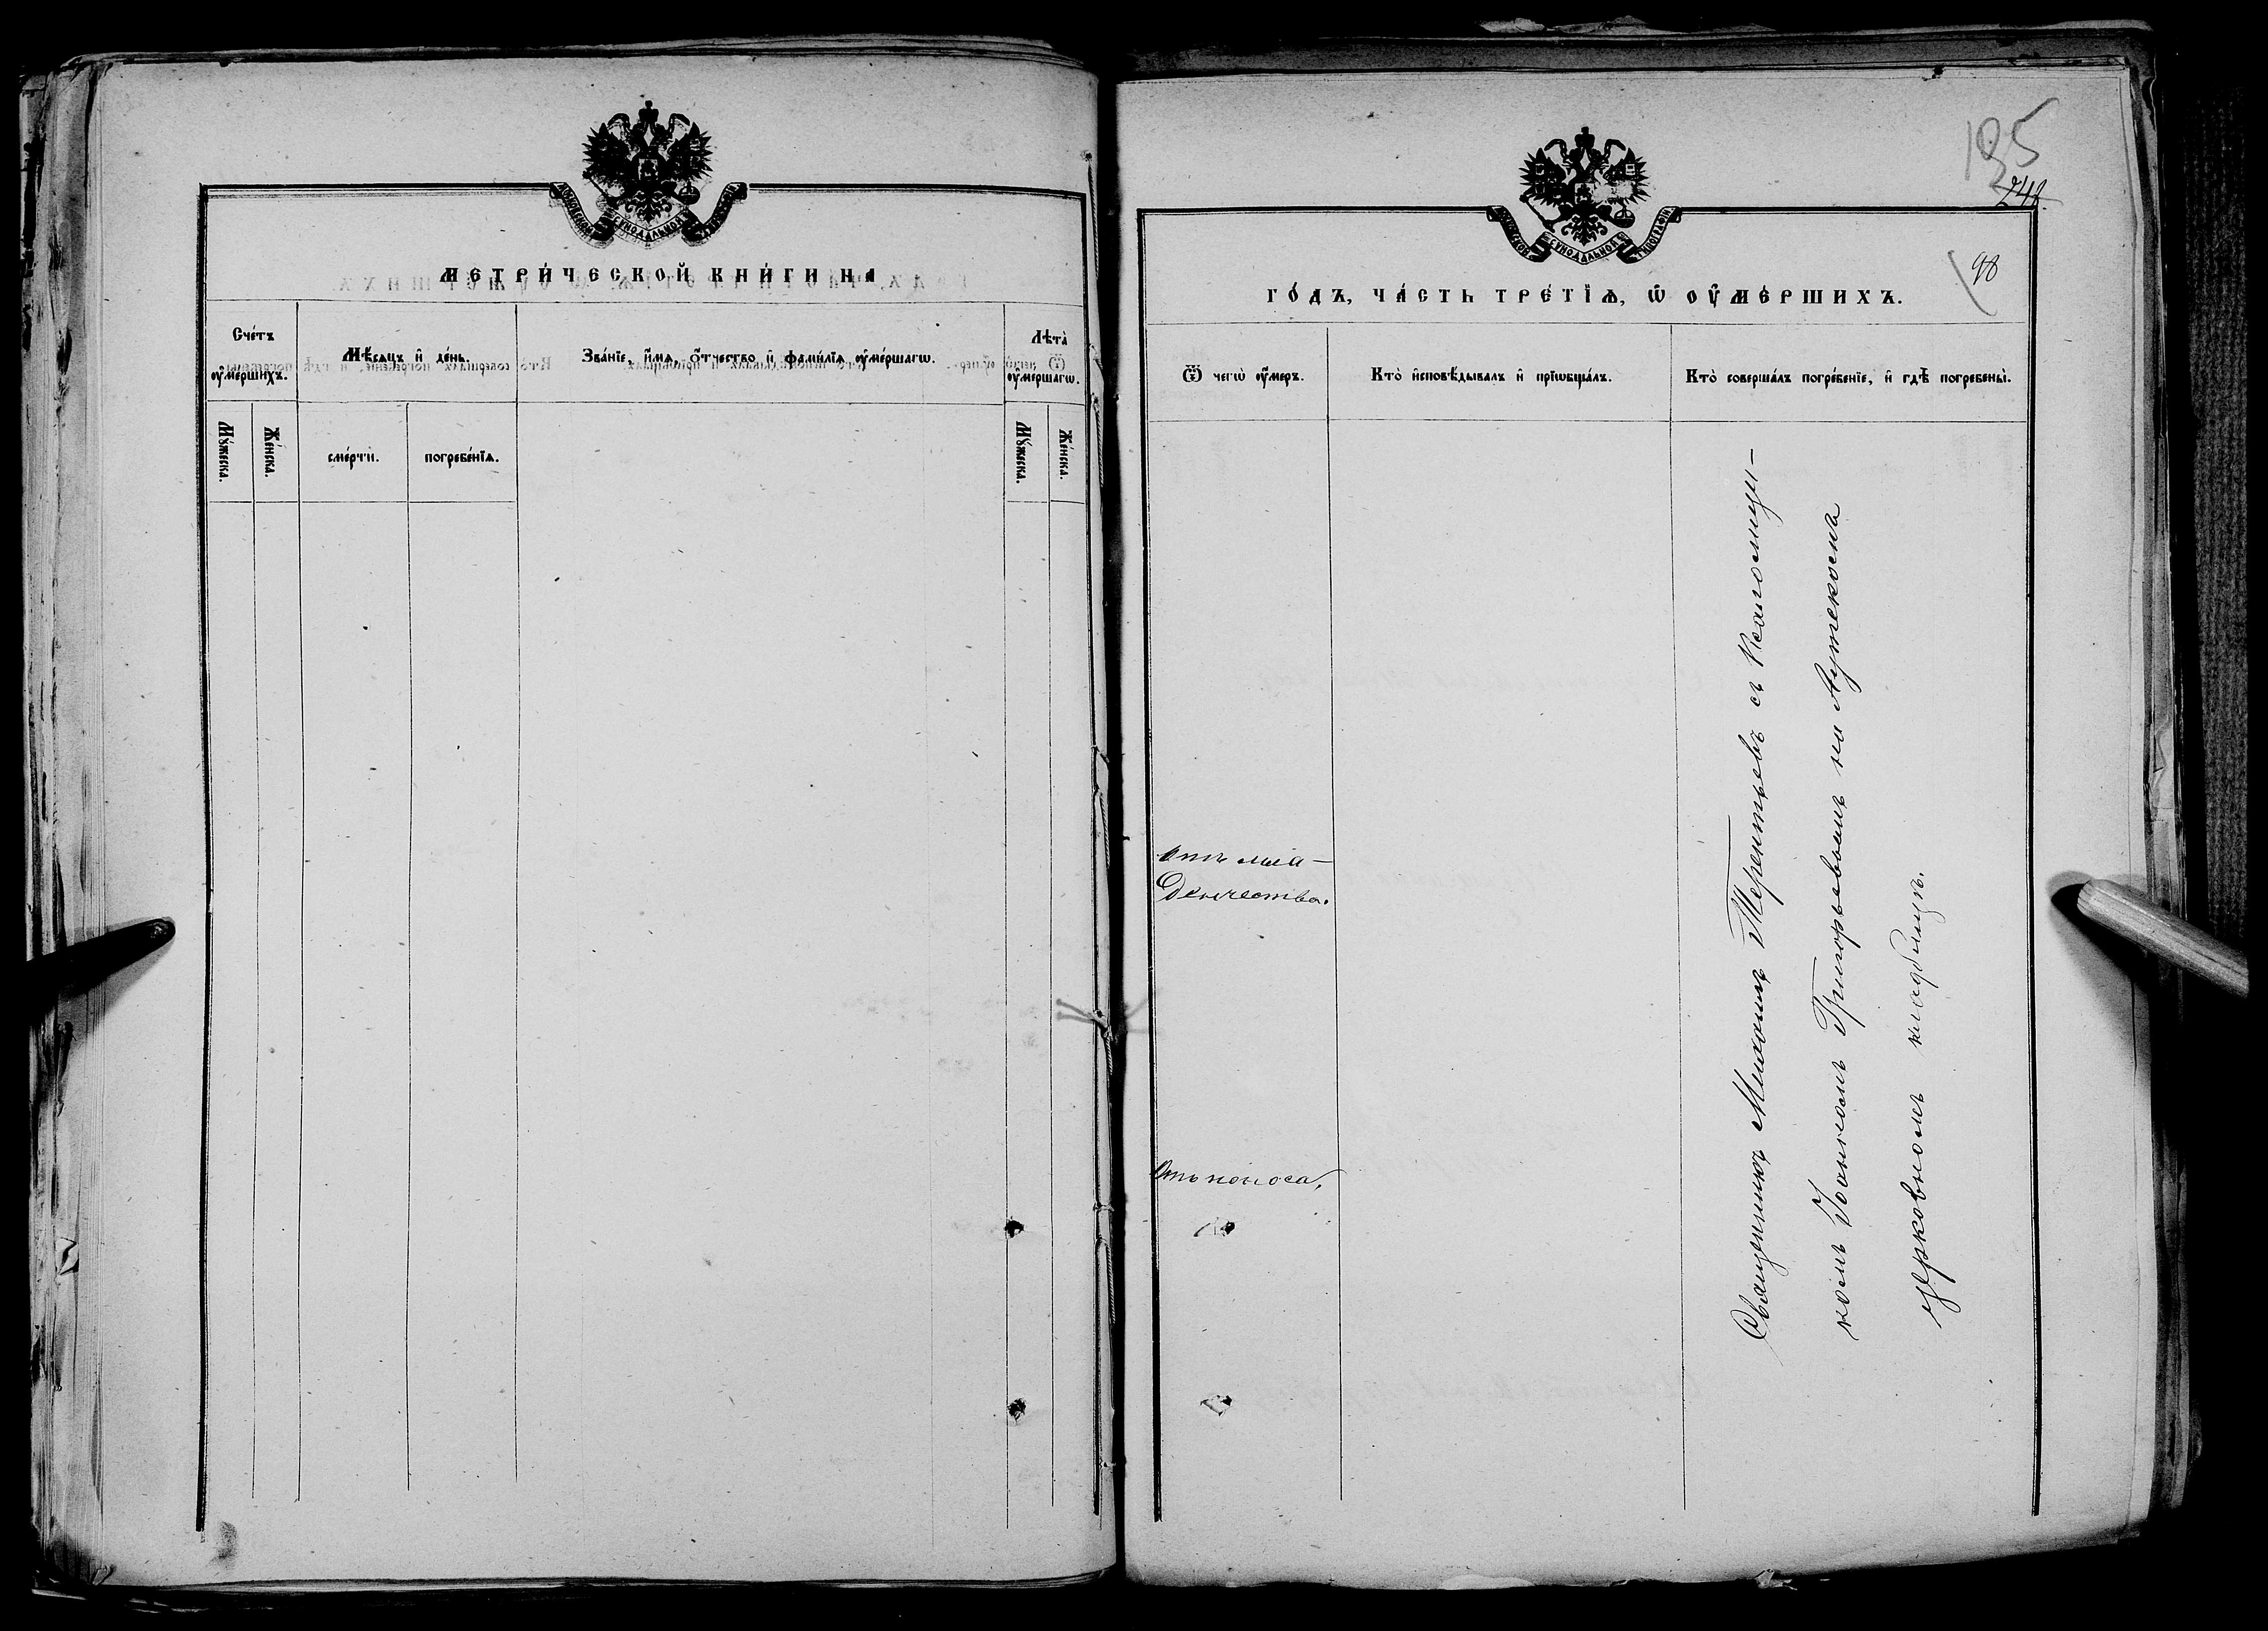 МОСКОВСКОЙ СѴНОДАЛЬНОЙ ТИПОГРАФІИ
МЕТРИ́ЧЕСКОЙ КНИ́ГИ НА
Сче́тъ ᲂу҆ме́ршихъ.
Мѣ́сяцъ и҆ де́нь.
Зва́нїе, и҆́мѧ, ѻ҆́тчество и҆ фами́лїѧ ᲂу҆ме́ршагѡ.
Лѣта̀ ᲂу҆ме́ршагѡ.
Мꙋ́жеска.
Же́нска.
сме́рти.
погребе́нїѧ.
Мꙋ́жеска.
Же́нска.
195
248.
98
МОСКОВСКОЙ СѴНОДАЛЬНОЙ ТИПОГРАФІИ
ГО́ДЪ, ЧА́СТЬ ТРЕ́ТЇѦ, Ѡ҆ ОУ҆МЕ́РШИХЪ.
Ѿ чегѡ̀ ᲂу҆́меръ.
Кто̀ и҆сповѣ́дывалъ и҆ прїѡбща́лъ.
Кто̀ соверша́лъ погребе́нїе, и҆ гдѣ̀ погребены̀.
Отъ мла-
денчества.
Отъ поноса,
Священникъ Михаилъ Терентьевъ съ Псаломщи-
комъ Іоанномъ Григорьевымъ на
церковномъ кладбищѣ.